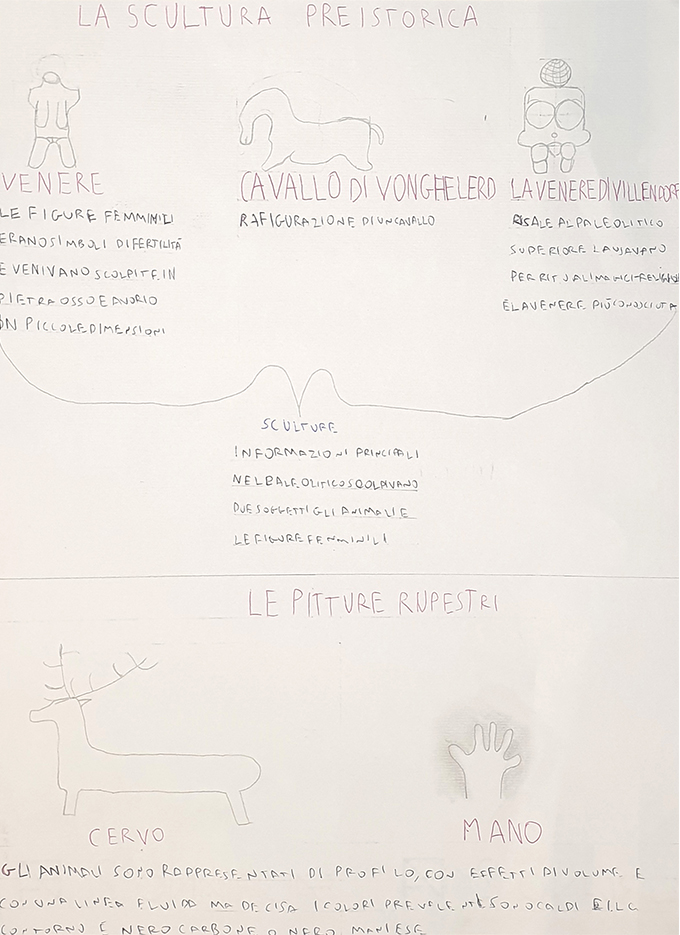 LA SCULTURA PREISTORICA
VENERE
LE FIGURE FEMMINILI
ERANO SIMBOLI DI FERTILITÀ
E VENIVANO SCOLPITE IN
PIETRA OSSO E AVORIO
IN PICCOLE DIMENSIONI
CAVALLO DI VONGHELERD
RAFIGURAZIONE DI UN CAVALLO
LA VENERE DI VILLENDORF
RISALE AL PALEOLITICO
SUPERIORE LA USAVANO
PER RITUALI MAGICI-RELIGIOSI
È LA VENERE PIÙ CONOSCIUTA
SCULTURE
INFORMAZIONI PRINCIPALI
NEL PALEOLITICO SCOLPIVANO
DUE SOGGETTI GLI ANIMALI E
LE FIGURE FEMMINILI
LE PITTURE RUPESTRI
CERVO
MANO
GLI ANIMALI SONO RAPPRESENTATI DI PROFILO, CON EFFETTI DI VOLUME E
CON UNA LINEA FLUIDA MA DECISA I COLORI PREVALENTI SONO CALDI E IL
CONTORNO È NERO CARBONE O NERO